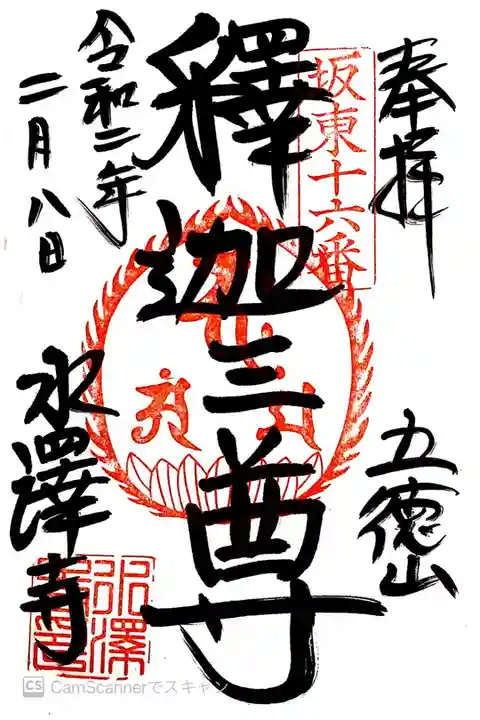 奉拝
坂東十六番
五徳山
釋迦三尊
令和二年
二月八日
水澤寺
CS CamScannerでスキャン